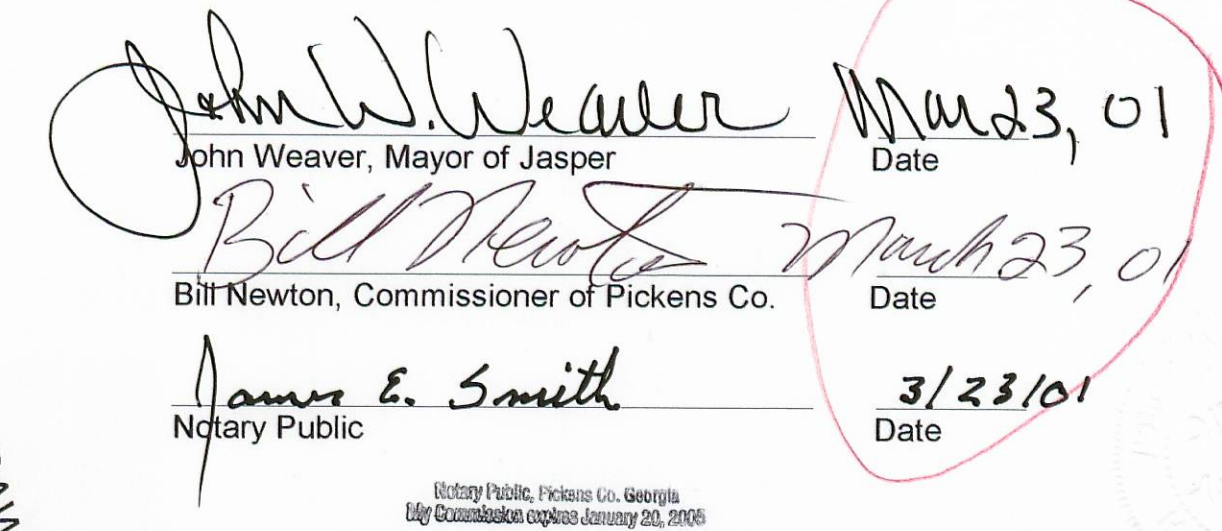 John W. Weaver Mar 23, 01
John Weaver, Mayor of Jasper Date
Bill Newton March 23, 01
Bill Newton, Commissioner of Pickens Co. Date
James E. Smith 3/23/01
Notary Public Date
Notary Public, Pickens Co. Georgia
My Commission expires January 20, 2005